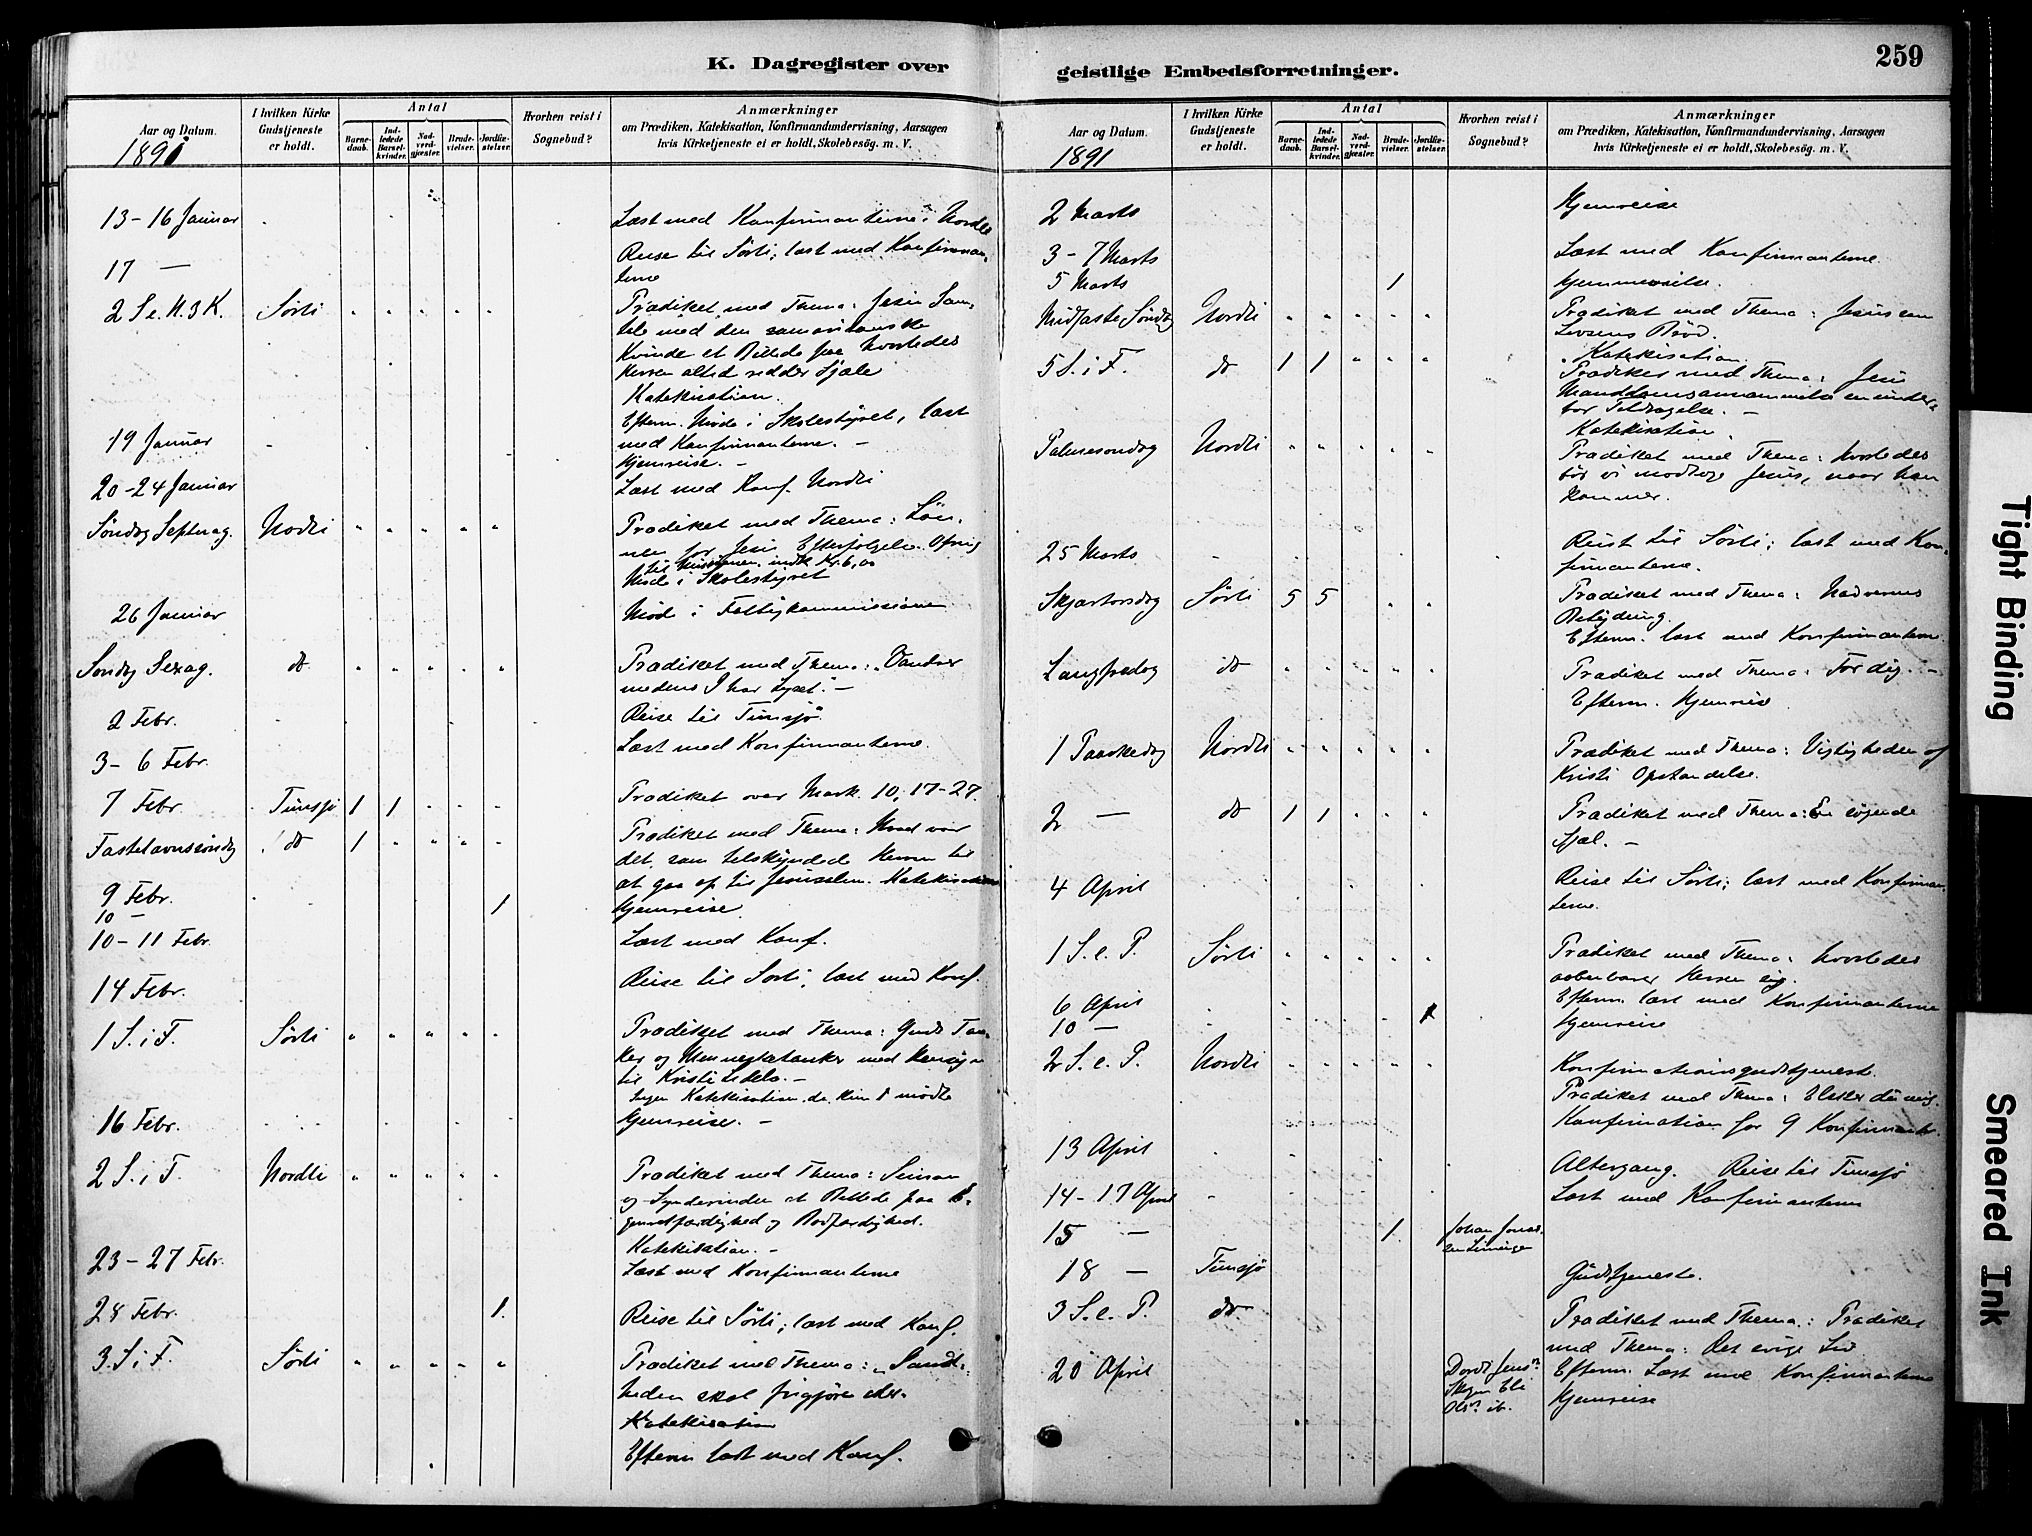 K. Dagregister over
geistlige Embedsforretninger.
259
Aar og Datum.
1891
I hvilken Kirke Gudstjeneste er holdt.
Antal
Barnedaab.
Indledede Barselkvinder.
Nadverdgjæster.
Brudevielser.
Jordfæstelser.
Hvorhen reist i Sognebud?
Anmærkninger
om Prædiken, Katekisation, Konfirmandundervisning, Aarsagen
hvis Kirketjeneste ei er holdt, Skolebesøg. m. V.
13-16 Januar Læst med Konfirmanterne i Nordli
17 — Reise til Sørli; læst med Konfirman-
terne
2 S. e. H. 3 K. Sørli " " " " " Prædiket med Thema: Jesu Sam-
tale med den samaritanske
Kvinde et Billede paa hvorledes
Herren altid redder Sjæle
Katekisation.
19 Januar Efterm. Møde i Skolestyret, læst
med Konfirmanterne. —
Hjemreise. —
20-24 Januar Læst med Konf. Nordli
Søndag Septuag. Nordli " " " " " Prædiket med Thema: Løn-
nen for Jesu Efterfølgelse. Ofring
til Missionen, indk. Kr. 6,00
Møde i Skolestyret
26 Januar Møde i Fattigkommissionen
Søndag Sexag. do " " " " " Prædiket med Thema: "Vandrer
medens I har Lyset". —
2 Febr. Reise til Tunsjø.
3-6 Febr. Læst med Konfirmanterne.
7 Febr. Tunsjø 1 1 " " " Prædiket over Mark. 10, 17-27.
Fastelavnssøndag do 1 " " " " Prædiket med Thema: Hvad var
det, som tilskyndede Herren til
at gaa op til Jerusalem. Katekisation
9 Febr. Hjemreise.
10 — 1
10-11 Febr. Læst med Konf.
14 Febr. Reise til Sørli, læst med Konf.
1 S. i F. Sørli " " " " " Prædiket med Thema: Guds Tan-
ker og Mennesketanker med Hensyn
til Kristi Lidelse. —
Ingen Katekisation, da kun 8 mødte
16 Febr. Hjemreise. —
2 S. i F. Nordli " " " " " Prædiket med Thema: Simon
og Synderinden et Billede paa E-
genretfærdighed og Bodfærdighed.
Katekisation. —
23-27 Febr. Læst med Konfirmanterne
28 Febr. 1. Reise til Sørli; læst med Konf.
3. S. i F. Sørli " " " " " Prædiket med Thema: "Sand-
heden skal frigjøre eder.
Katekisation
Efterm læst med Konf.
Aar og Datum.
1891
I hvilken Kirke Gudstjeneste er holdt.
Antal
Barnedaab.
Indledede Barselkvinder.
Nadverdgjæster.
Brudevielser.
Jordfæstelser.
Hvorhen reist i Sognebud?
Anmærkninger
om Prædiken, Katekisation, Konfirmandundervisning, Aarsagen
hvis Kirketjeneste ei er holdt, Skolebesøg. m. V.
2 Marts Hjemreise
3-7 Marts Læst med Konfirmanterne.
5 Marts 1
Midfaste Søndag Nordli " " " " " Prædiket med Thema: Jesus som
Livsens Brød.
Katekisation.
5 S. i F. do 1 1 " " " Prædiket med Thema: Jesu
Tildragelse. —
Katekisation.
Palmesøndag Nordli " " " " " Prædiket med Thema: hvorledes
bør vi modtage Jesus, naar han
kommer.
25 Marts Reist til Sørli; læst med Kon-
firmanterne.
Skjærtorsdag Sørli 5 5 " " Prædiket med Thema: Nadverens
Betydning.
Efterm. læst med Konfirmanterne.
Langfredag do " " " " " Prædiket med Thema: For dig. —
Efterm. Hjemreise
1 Paaskedag Nordli " " " " " Prædiket med Thema: Vigtigheden af
Kristi Opstandelse.
2 — do 1 1 " " " Prædiket med Thema: En søgende
Sjæl. —
4 April Reise til Sørli; læst med Konfirman-
terne.
1 S. e. P. Sørli " " " " " Prædiket med Thema: hvorledes
aabenbarer Herren sig.
Efterm. læst med Konfirmanterne
6 April Hjemreise
10 — 1
2 S. e. P. Nordli " " " " " Konfirmationsgudstjeneste.
Prædiket med Thema: Elsker du mig.
Konfirmation for 9 Konfirmanter.
13 April Altergang. Reise til Tunsjø
14-17 April Læst med Konfirmanterne
15 — 1. Johan Jonas-
sen Limingen
18 — Tunsjø Gudstjeneste.
3 S. e. P. do. Prædiket med Thema: Prædiket
med Thema: Det evige Liv
Efterm. Læst med Konfirmanterne
20 April Hjemreise
Tight Binding
Smeared Ink